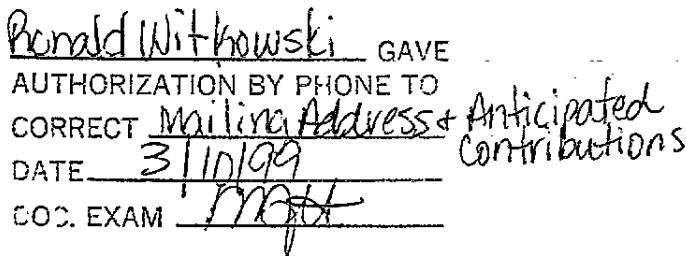 Ronald Witkowski GAVE
AUTHORIZATION BY PHONE TO
CORRECT Mailing Address & Anticipated
contributions
DATE 3/10/99
DOC. EXAM